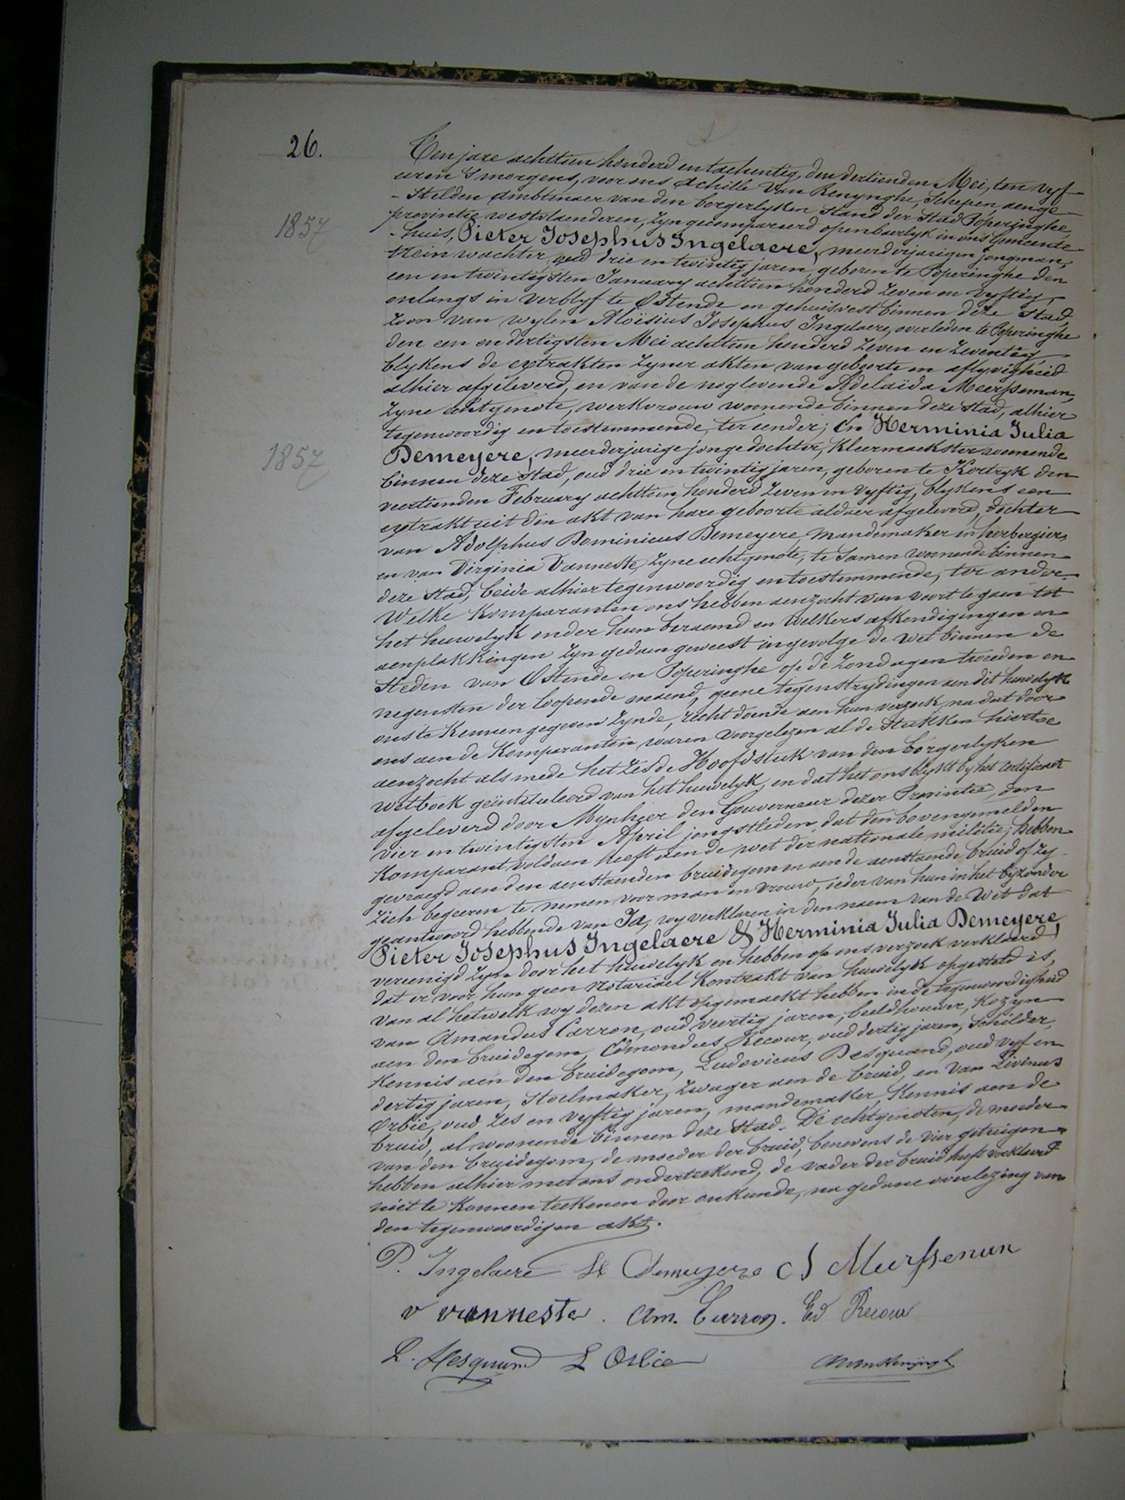 26.
Ten jare achttien honderd en tachentig, den dertienden Mei, ten vyf
uren 's morgens, voor ons Achille Van Renynghe, Schepen aenge-
-stelden Ambtenaer van den borgerlyken Stand der Stad Poperinghe,
provintie westvlaenderen, zyn gecompareerd openbaerlyk in ons Gemeente-
1857
-huis, Pieter Josephus Ingelaere, meerderjarigen jongman,
trein wachter, oud drie en twintig jaren, geboren te Poperinghe den
een en twintigsten January achttien honderd zeven en vyftig,
onlangs in verblyf te Ostende en gehuisvest binnen deze Stad,
zoon van wylen Aloisius Josephus Ingelaere, overleden te Poperinghe
den een en dertigsten Mei achttien honderd zeven en zeventig,
blykens de extrakten zyner akten van geboorte en aflyvigheid
alhier afgeleverd, en van de noglevende Adelaida Meersseman,
zyne echtgenote, werkvrouw woonende binnen deze Stad, alhier
tegenwoordig en toestemmende, ter eender; En Herminia Julia
1857
Demeyere, meerderjarige jonge dochter, kleermaekster woonende
binnen deze Stad, oud drie en twintig jaren, geboren te Kortryk den
veertienden February achttien honderd zeven en vyftig, blykens een
extrakt uit den akt van hare geboorte aldaer afgeleverd, dochter
van Adolphus Dominicus Demeyere, mandemaker en herbergier,
en van Virginia Vanneste, zyne echtgenote, te samen woonende binnen
deze Stad, beide alhier tegenwoordig en toestemmende, ter ander.
Welke Komparanten ons hebben aenzocht van voort te gaen tot
het huwelyk onder hun beraemd en welkers afkondigingen en
aenplakkingen zyn gedaen geweest ingevolge de wet binnen de
Steden van Ostende en Poperinghe op de zondagen tweeden en
negensten der loopende maend, geene tegenstrydingen aen dit huwelyk
ons te kennen gegeven zynde, recht doende aen hun verzoek, na dat door
ons aen de Komparanten waren voorgelezen al de Stukken hiertoe
aenzocht als mede het zesde Hoofdstuk van den borgerlyken
wetboek geïntituleerd van het huwelyk, en dat het ons blykt by het certificaet
afgeleverd door Mynheer den Gouverneur dezer Provintie, den
vier en twintigsten April jongstleden, dat den bovengemelden
Komparant voldaen heeft aen de wet der nationale militie; hebben
gevraegd aen den aenstaenden bruidegom en aen de aenstaende bruid of zy
zich begeeren te nemen voor man en vrouw, ieder van hun in het byzonder
geantwoord hebbende van Ja, wy verklaren in den naem van de Wet dat
Pieter Josephus Ingelaere & Herminia Julia Demeyere
vereenigd zyn door het huwelyk en hebben op ons verzoek verklaerd
dat er voor hun geen Notarieel Kontrakt van huwelyk opgesteld is,
van al hetwelk wy dezen akt opgemaekt hebben in de tegenwoordigheid
van Amandus Carron, oud veertig jaren, beeldhouwer, kozyn
aen den bruidegom, Edmondus Recour, oud dertig jaren, Schilder,
Kennis aen den bruidegom, Ludovicus Desquand, oud vyf en
dertig jaren, Stoelmaker, zwager aen de bruid, en van Livinus
Orbie, oud zes en vyftig jaren, mandemaker, Kennis aen de
bruid, al woonende binnen deze Stad. De echtgenoten, de moeder
van den bruidegom, de moeder der bruid, benevens de vier getuigen
hebben alhier met ons onderteekend, de vader der bruid heeft verklaerd
niet te konnen teekenen door onkunde, na gedane overlezing van
den tegenwoordigen akt.
P. Ingelaere H Demeyere A Meerssenun
v vanneste. Am. Carron. Ed Recour
L. Desquand L Orbie